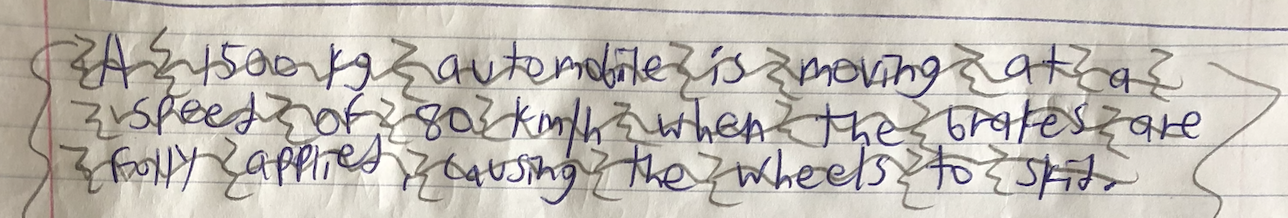 A 1500 kg automobile is moving at a
speed of 80 km/h when the brakes are
fully applied, causing the wheels to skid.